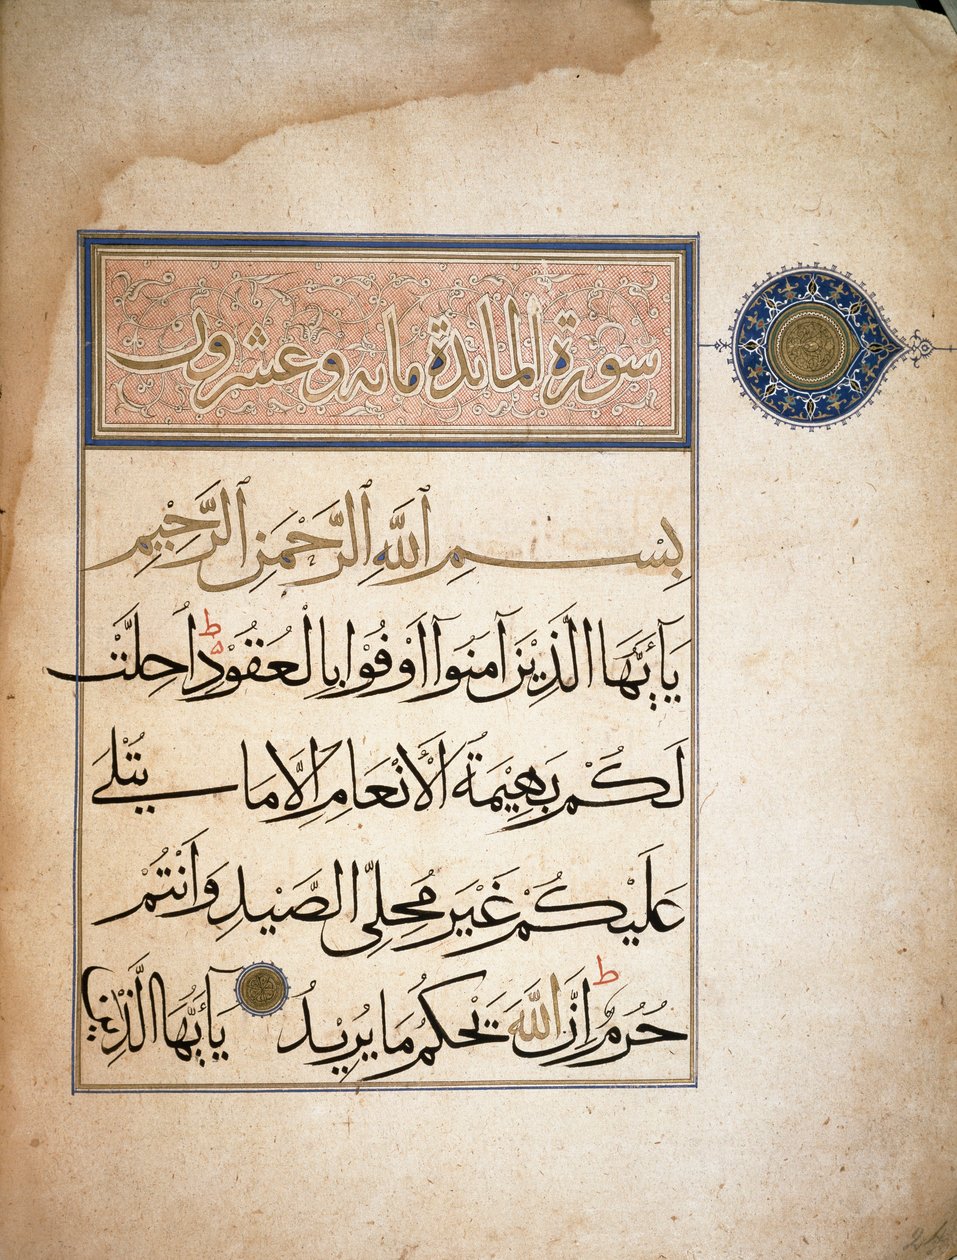 سورة المائدة مايه وعشرون
بِسْمِ ٱللَّهِ ٱلرَّحْمَٰنِ ٱلرَّحِيمِ
يَآأَيُّهَا الَّذِيْنَ آمَنُوآ اَوْفُوا بِالْعُقُوْدِ ط اُحِلَّتْ
لَكُمْ بَهِيْمَةُ الْأَنْعَامِ اِلَّا مَا يُتْلَىٰ
عَلَيْكُمْ غَيْرَ مُحِلِّى الصَّيْدِ وَاَنْتُمْ
حُرُمٌ ط اِنَّ اللَّهَ يَحْكُمُ مَا يُرِيْدُ يَآأَيُّهَا الَّذِيْنَ